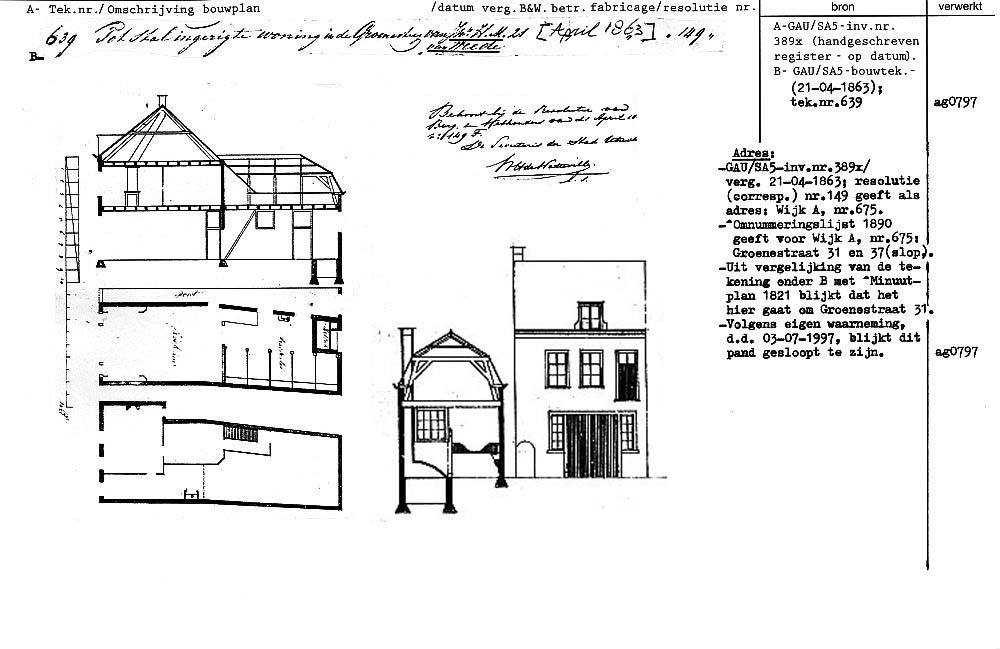 A- Tek.nr./ Omschrijving bouwplan /datum verg. B&W. betr. fabricage/resolutie nr. bron verwerkt
639 Tot Stal ingerigte woning in de Groenestr. van Jhr. H.M. 21 [April 1863] . 149.
van Weede.
B-
A-GAU/SA5-inv.nr.
389x (handgeschreven
register - op datum).
B- GAU/SA5-bouwtek.-
(21-04-1863);
tek.nr.639 ag0797
Behoort bij de Resolutie van
Burg. en Wethouders van 21 April 18
149 F.
De Secretaris der Stad Utrecht
Adres:
-GAU/SA5-inv.nr.389x/
verg. 21-04-1863; resolutie
(corresp.) nr.149 geeft als
adres: Wijk A, nr.675.
-^Omnummeringslijst 1890
geeft voor Wijk A, nr.675:
Groenestraat 31 en 37(slop).
-Uit vergelijking van de te-
kening onder B met ^Minuut-
plan 1821 blijkt dat het
hier gaat om Groenestraat 31.
-Volgens eigen waarneming,
d.d. 03-07-1997, blijkt dit
pand gesloopt te zijn. ag0797